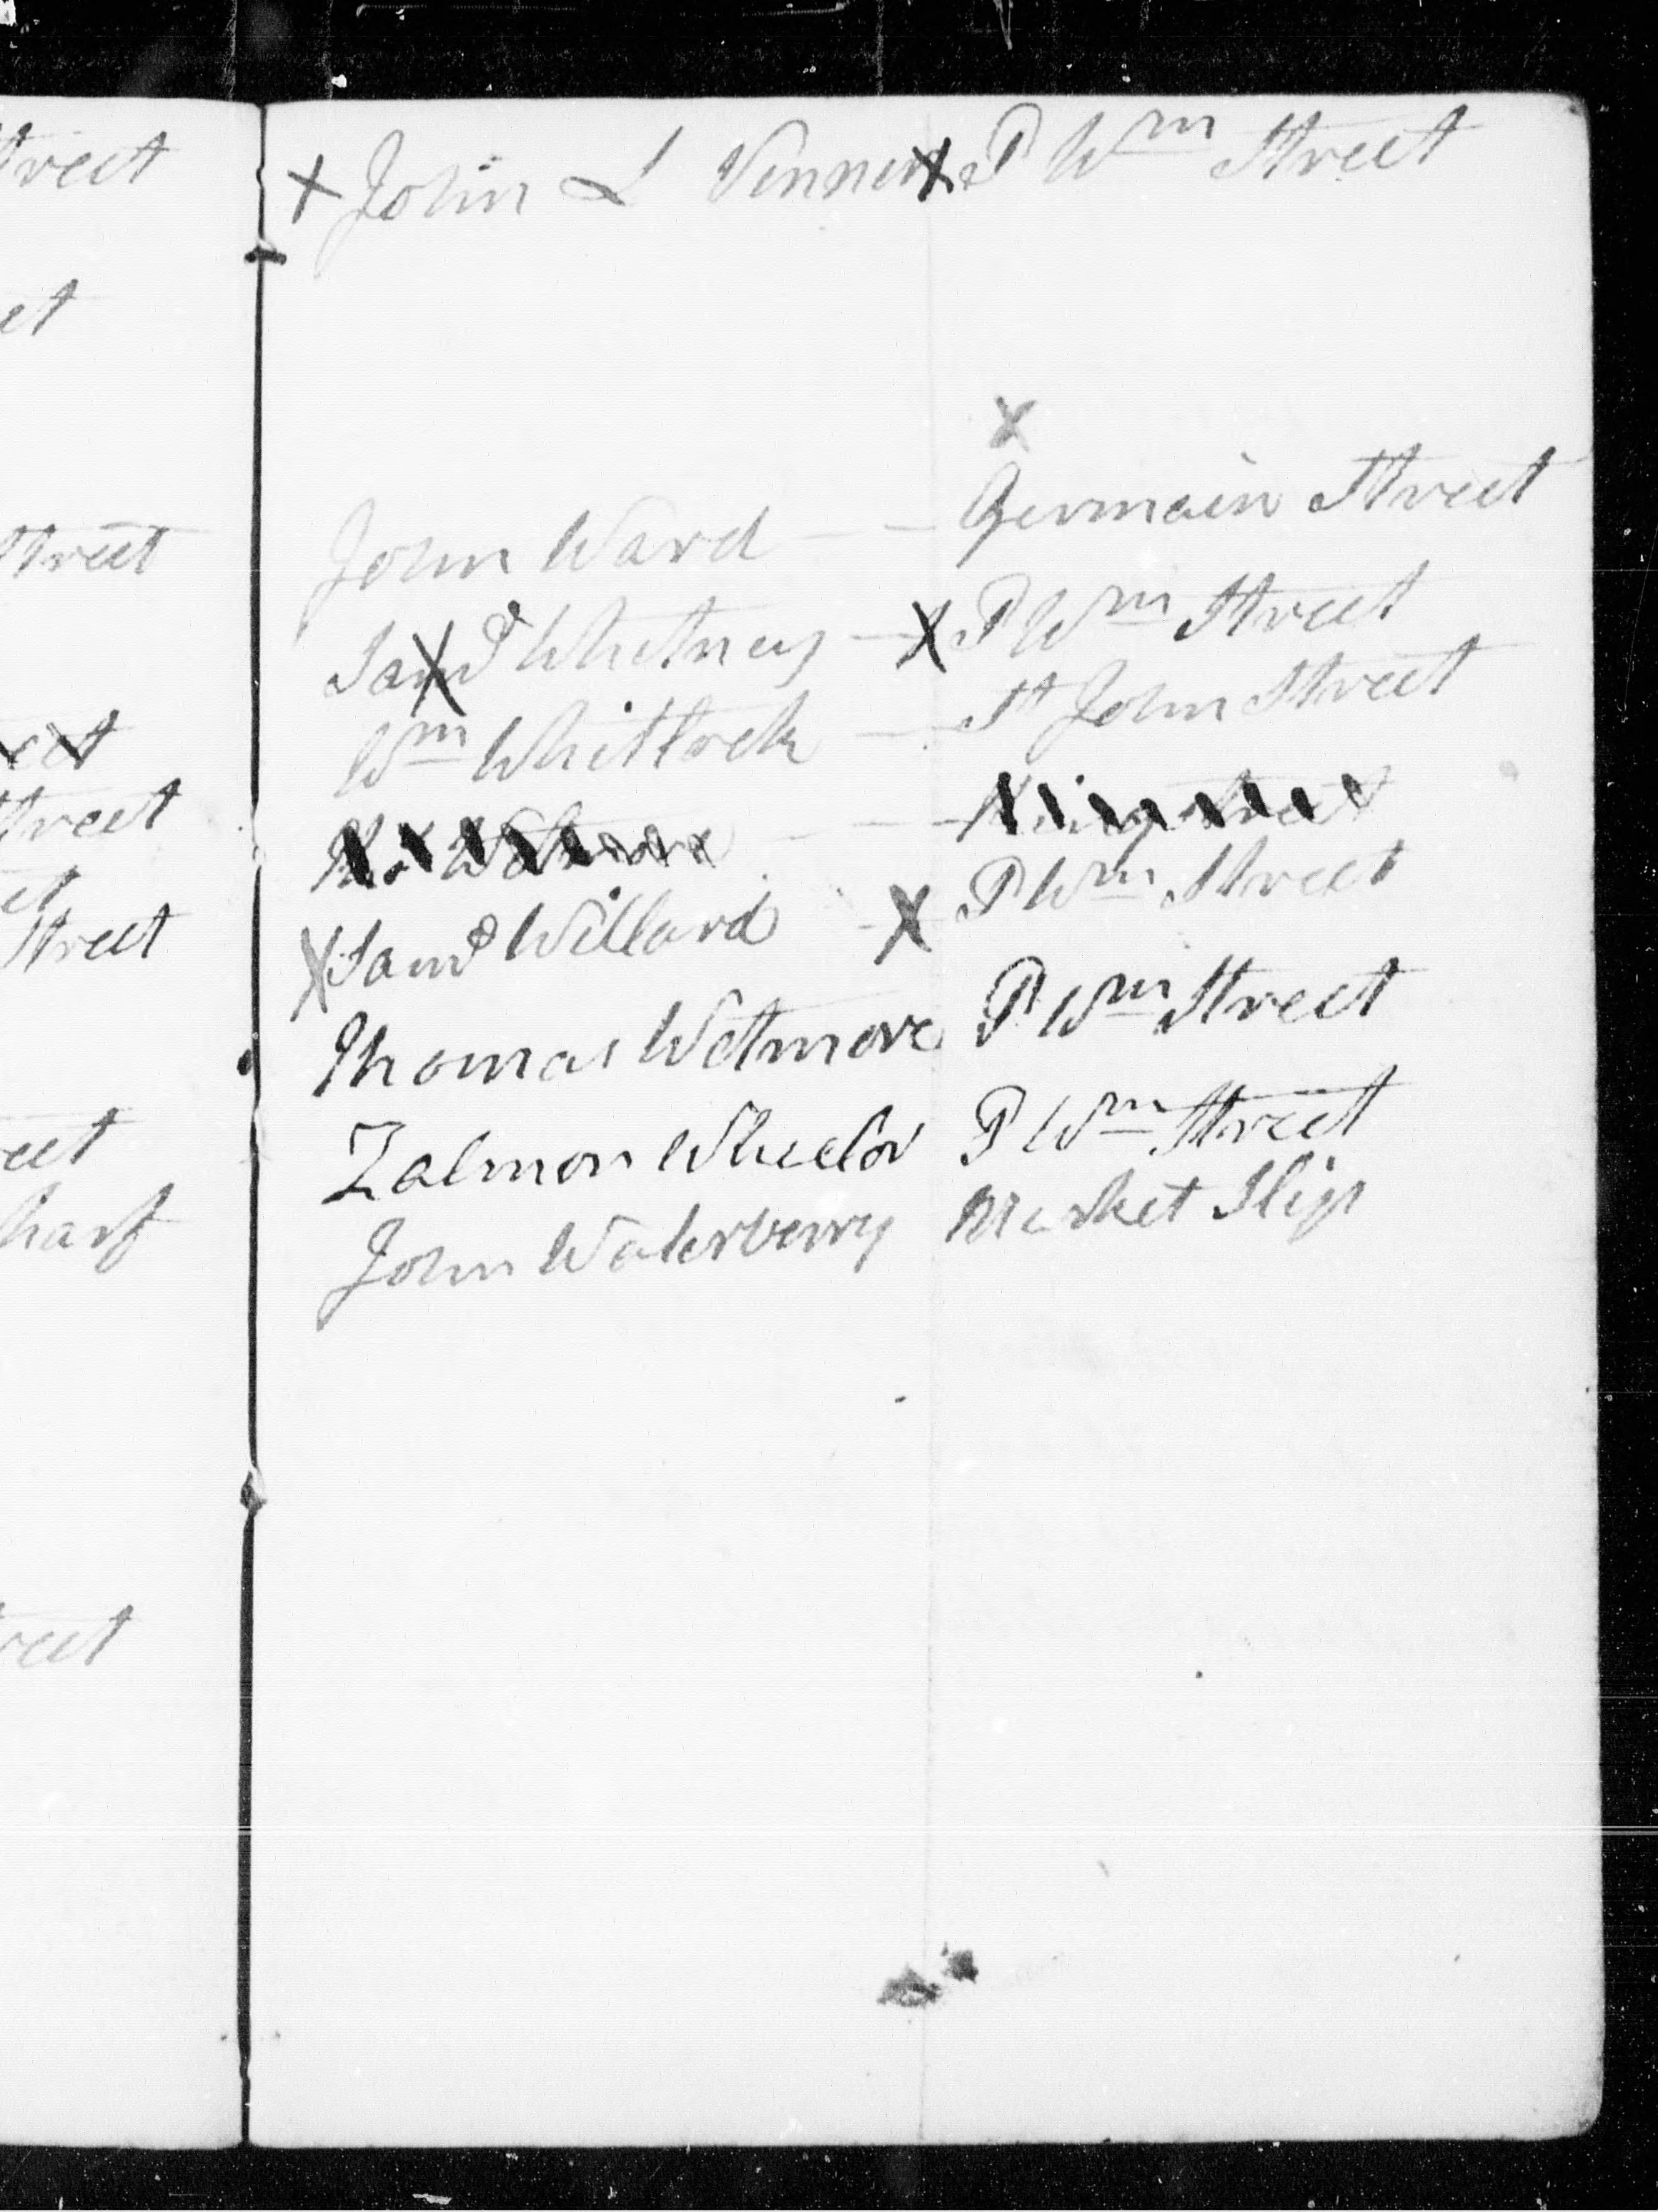 treet
et
Street
eet
Street
et
Street
eet
harf
reet
x John L Venner x P Wm Street
x
John Ward — — Germain Street
x Saml Whitney — x P Wm Street
Wm Whitlock — St John Street
— — King Street
x Saml Willard - x P Wm Street
Thomas Wetmore P Wm Street
Zalmon Wheelor P Wm Street
John Waterberry Market Slip